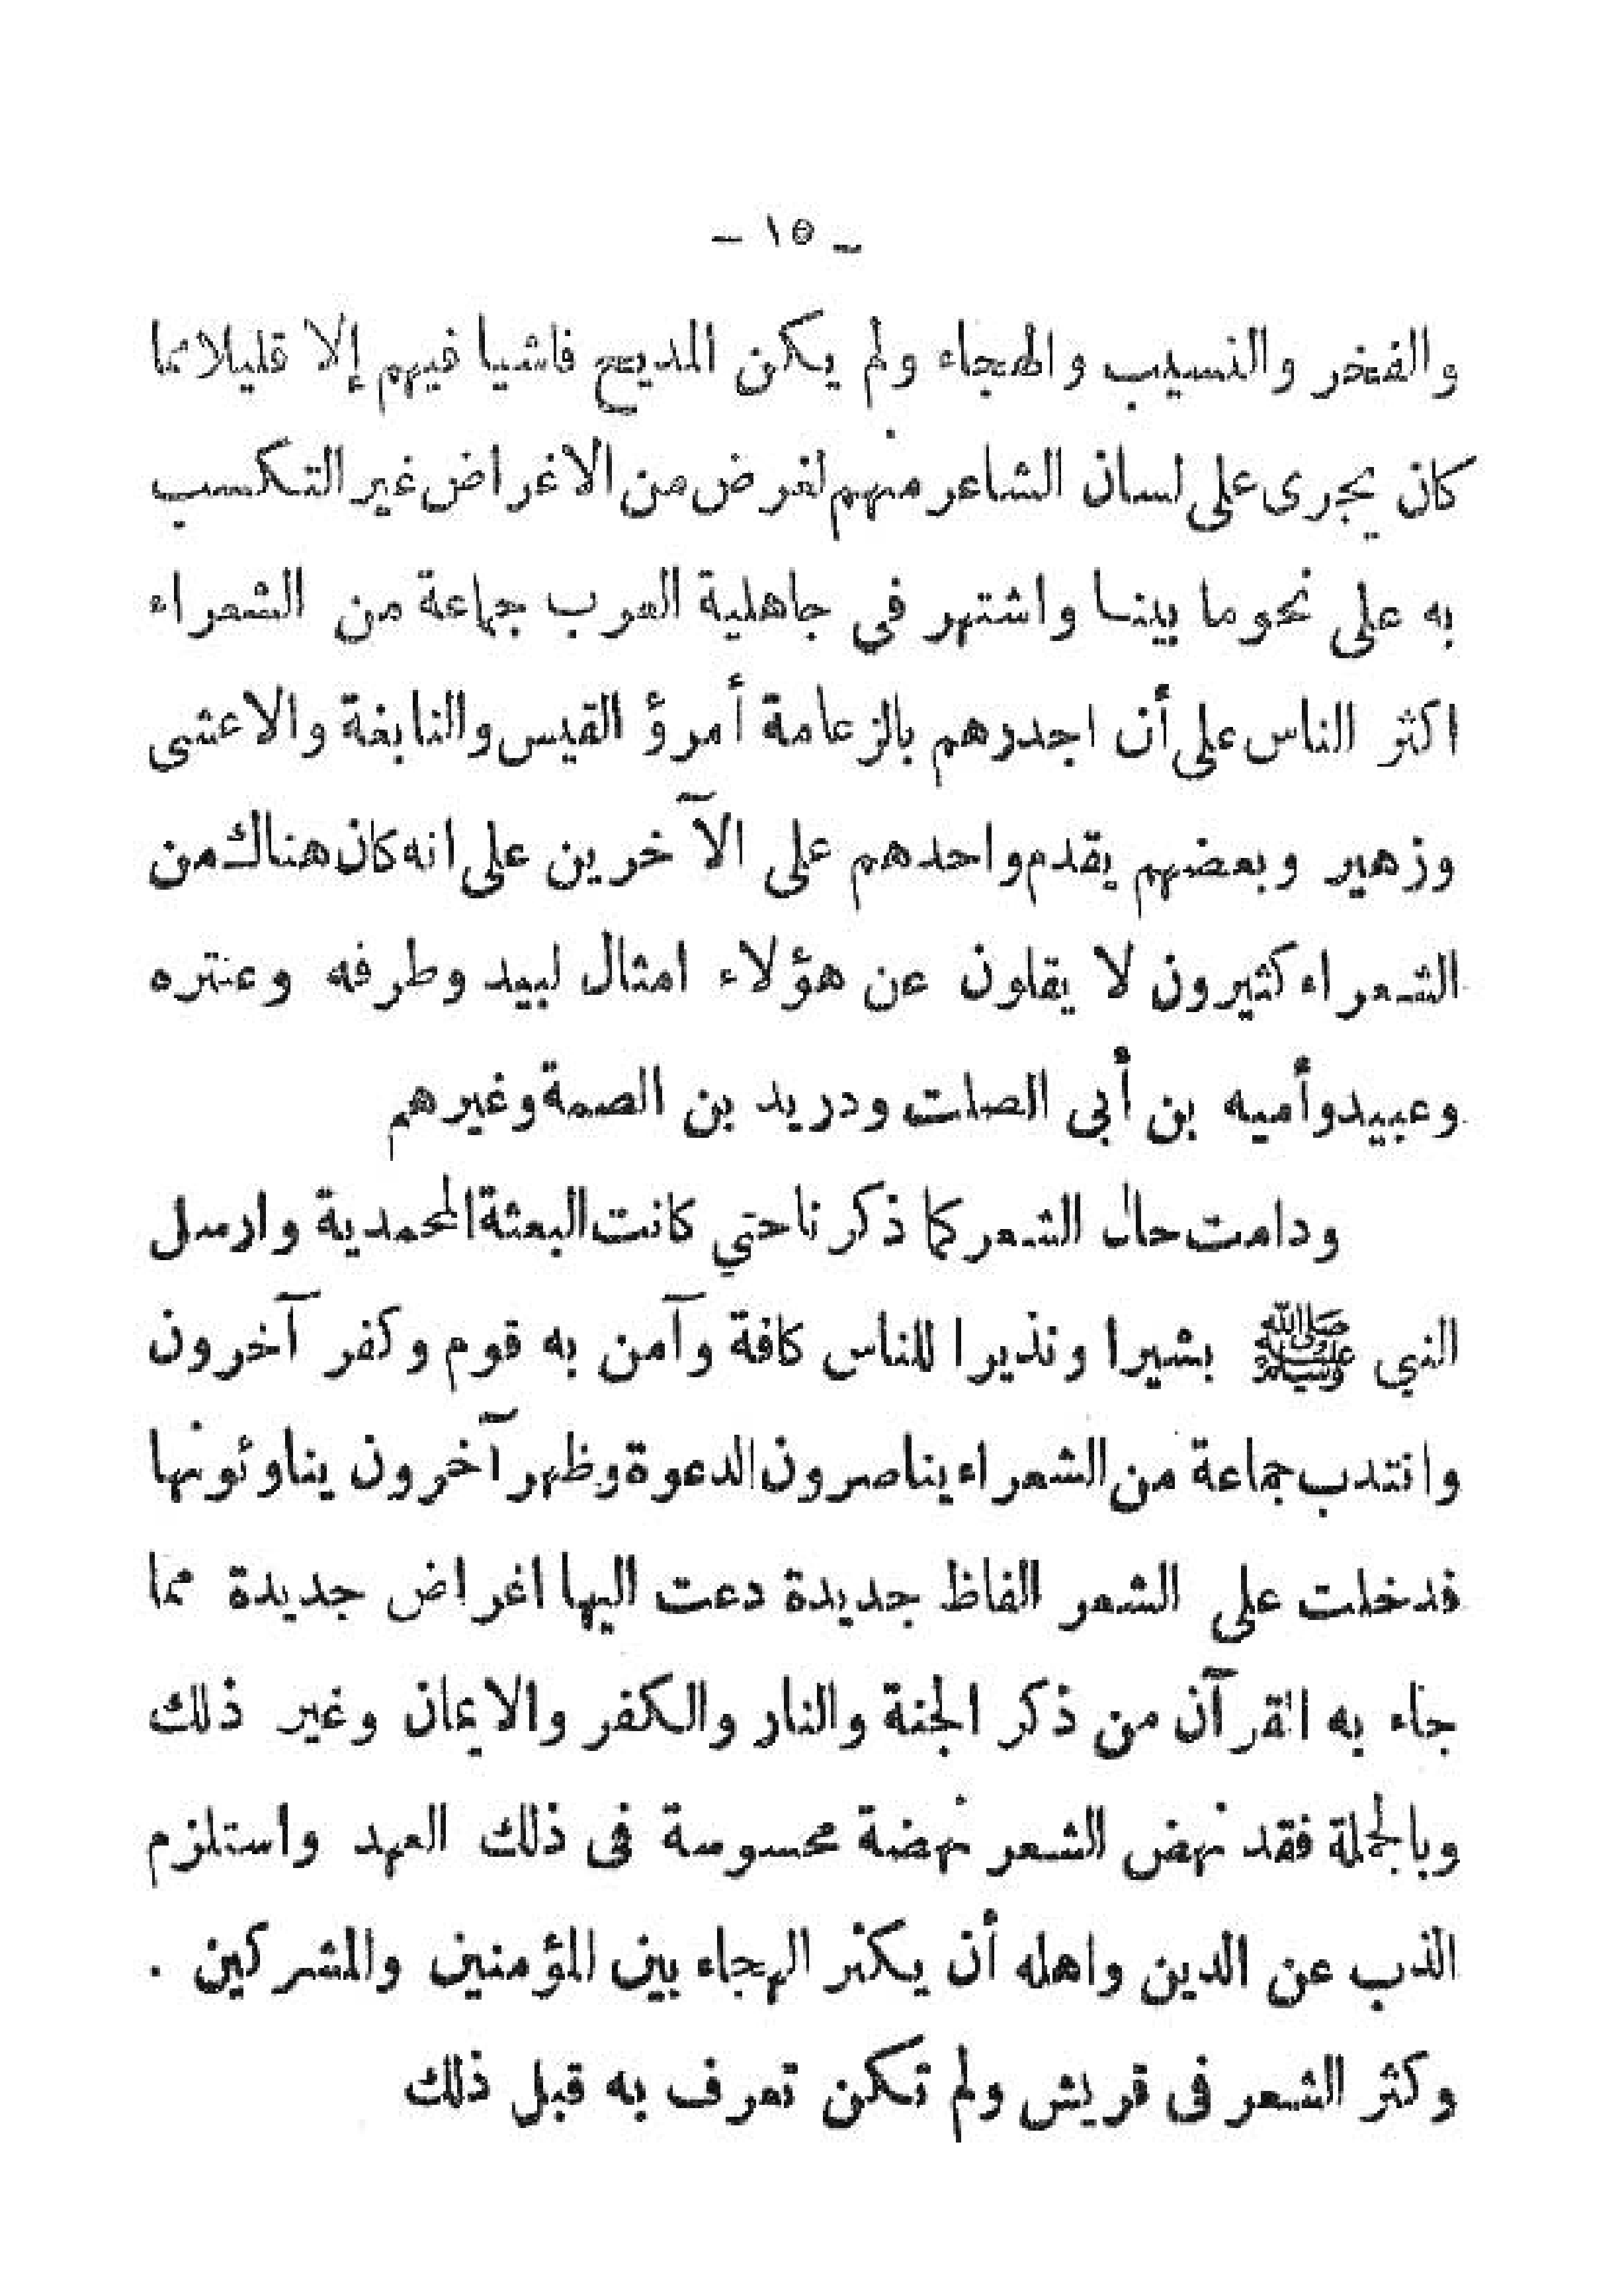 ـ ١٥ ـ
والفخر والنسيب والهجاء ولم يكن المديح فاشيا فيهم إلا قليلا مما
كان يجرى على لسان الشاعر منهم لغرض من الاغراض غير التكسب
به على نحو ما بينا واشتهر في جاهلية العرب جماعة من الشعراء
اكثر الناس على أن اجدرهم بالزعامة أمرؤ القيس والنابغة والاعشى
وزهير وبعضهم يقدم واحدهم على الآخرين على انه كان هناك من
الشعراء كثيرون لا يقلون عن هؤلاء امثال لبيد وطرفه وعنتره
وعبيد وأميه بن أبى الصلت ودريد بن الصمة وغيرهم
ودامت حال الشعر كما ذكرنا حتي كانت البعثة المحمدية وارسل
النبي ﷺ بشيرا ونذيرا للناس كافة وآمن به قوم وكفر آخرون
وانتدب جماعة من الشعراء يناصرون الدعوة وظهر آخرون يناوئونها
فدخلت على الشعر الفاظ جديدة دعت اليها اغراض جديدة مما
جاء به القرآن من ذكر الجنة والنار والكفر والايمان وغير ذلك
وبالجملة فقد نهض الشعر نهضة محسوسة فى ذلك العهد واستلزم
الذب عن الدين واهله أن يكثر الهجاء بين المؤمنين والمشركين .
وكثر الشعر فى قريش ولم تكن تعرف به قبل ذلك